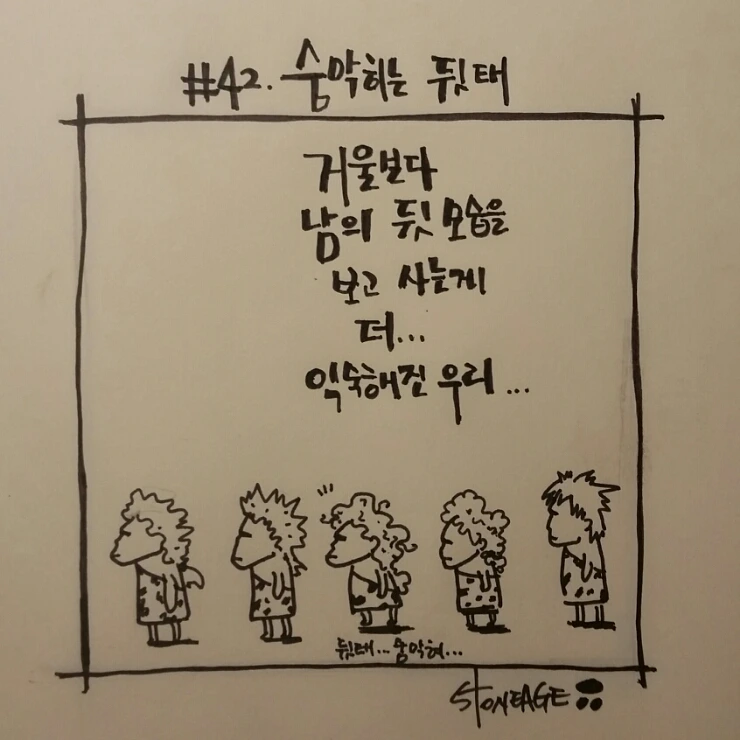 #42. 숨막히는 뒷태
거울보다
남의 뒷모습을
보고 사는게
더...
익숙해진 우리...
뒷태...숨막혀...
STONEAGE